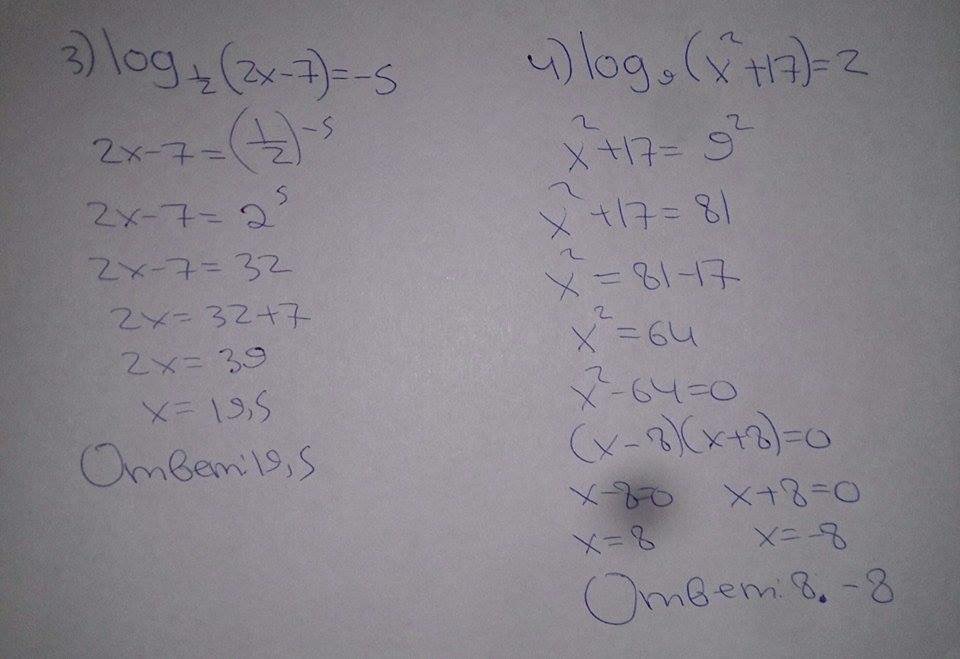 3) log½(2x-7)=-5
2x-7=(1/2)⁻⁵
2x-7=2⁵
2x-7=32
2x=32+7
2x=39
x=19,5
Ответ:19,5
4) log₉(x²+17)=2
x²+17=9²
x²+17=81
x²=81-17
x²=64
x²-64=0
(x-8)(x+8)=0
x-8=0 x+8=0
x=8 x=-8
Ответ:8. -8